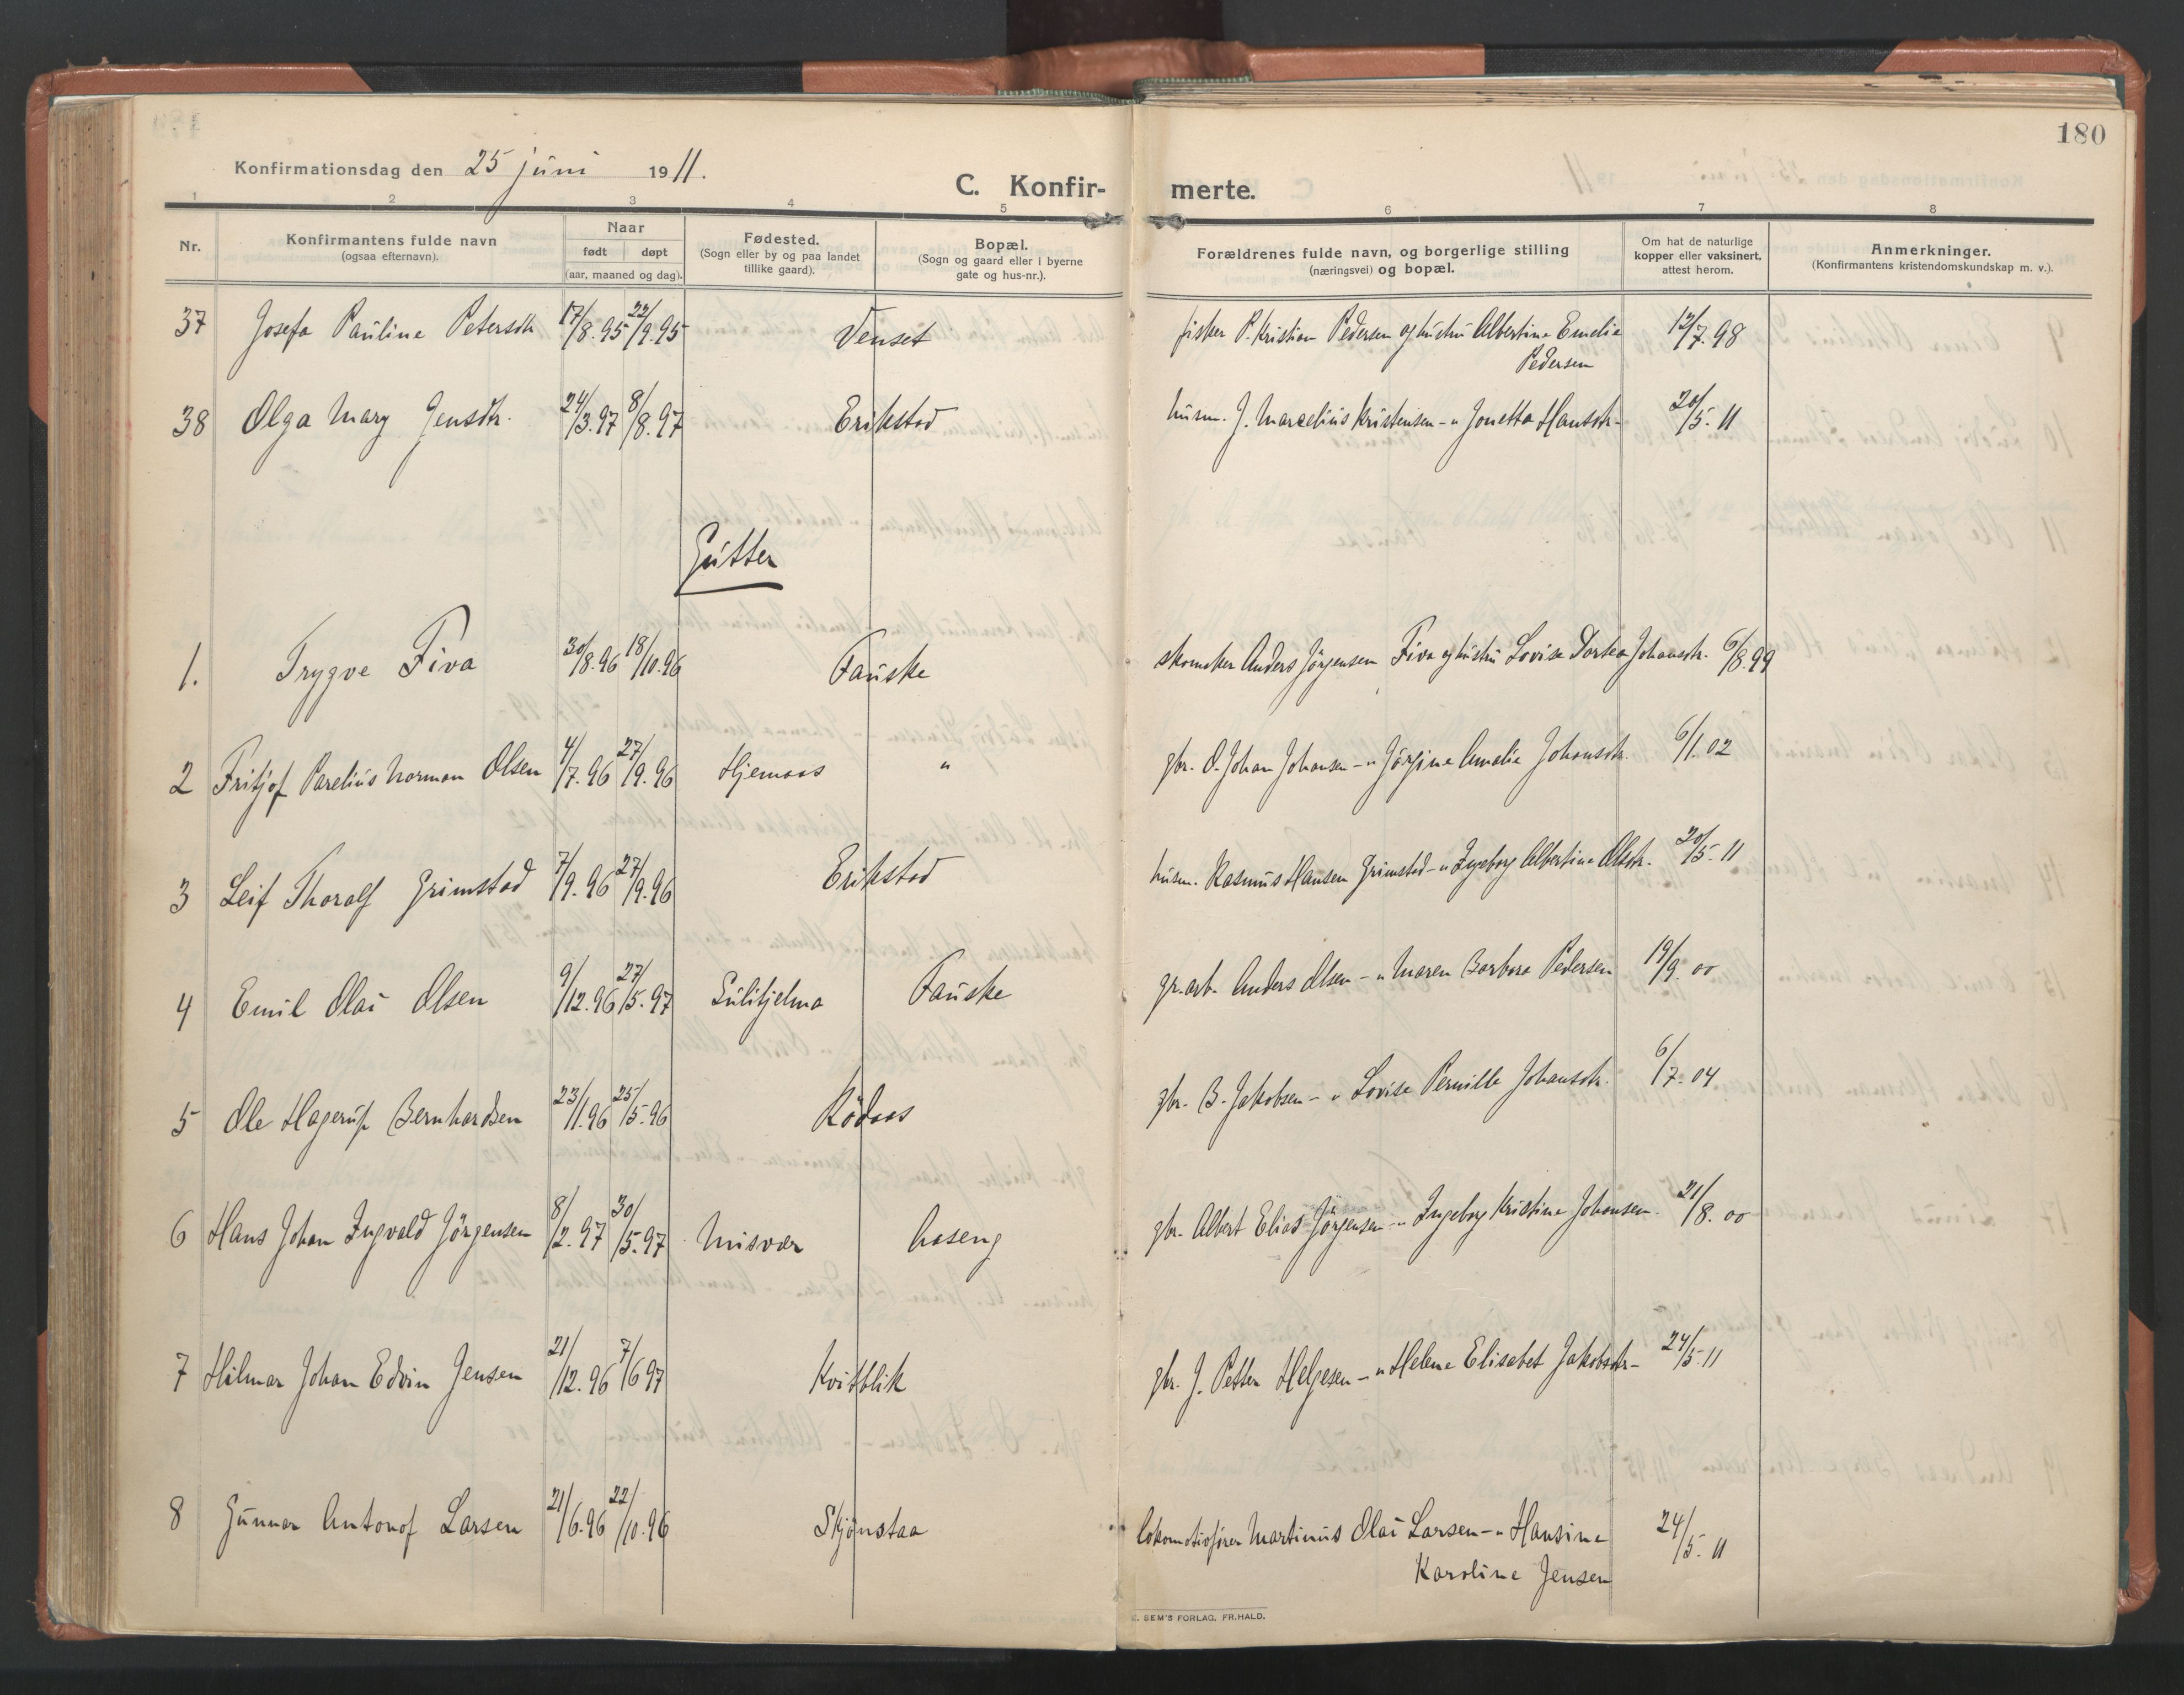 180
Konfirmationsdag den 25 juni 1911.
C. Konfir- merte.
1 2 3 4 5 6 7 8
Nr. Konfirmantens fulde navn (ogsaa efternavn). Naar født døpt (aar, maaned og dag). Fødested. (Sogn eller by og paa landet tillike gaard). Bopæl. (Sogn og gaard eller i byerne gate og hus-nr.). Forældrenes fulde navn, og borgerlige stilling (næringsvei) og bopæl. Om hat de naturlige kopper eller vaksinert, attest herom. Anmerkninger. (Konfirmantens kristendomskundskap m. v.).
37 Josefa Pauline Petersdtr 17/8.95 22/9.95 Venset fisker P. Kristian Pedersen og hustru Albertine Emelie 12/7.98
Pedersen
38 Olga Mary Jensdtr. 24/3.97 8/8.97 Erikstad husm. J. Marcelius Kristensen - " Jonetta Hansdtr - 20/5.11
Gutter
1. Trygve Fiva 30/8.96 18/10.96 Fauske skomaker Anders Jörgensen Fiva og hustru Lovise Dortea Johansdtr. 6/8.99
2 Fritjof Parelius Norman Olsen 4/7.96 27/9.96 Hjemaas " gbr. O. Johan Johansen - " Jörgine Amalie Johansdtr. 6/1.02
3 Leif Thoralf Grimstad 7/9.96 27/9.96 Erikstad husm. Rasmus Hansen Grimstad - " Ingeborg Albertine Olsdtr. 20/5.11
4 Emil Olai Olsen 9/12.96 27/5.97 Sulitjelma Fauske gr.arb. Anders Olsen - " Maren Barbara Pedersen 19/9.00
5 Ole Hagerup Bernhardsen 23/1.96 25/5.96 Rödaas gbr. B. Jakobsen - " Lovise Pernille Johansdtr. 6/7.04
6 Hans Johan Ingvald Jörgensen 8/2.97 30/5.97 Misvær Aaseng gbr. Albert Elias Jörgensen - " Ingeborg Kristine Johansen. 21/8.00
7 Hilmar Johan Edvin Jensen 21/12.96 7/6 97 Kvitblik gbr. J. Petter Helgesen - " Helene Elisabet Jakobsdtr - 24/5.11
8 Gunnar Antonof Larsen 21/6.96 22/10.96 Skjönstaa lokomotivfører Martinus Olai Larsen - " Hansine 24/5.11
Karoline Jensen
E. SEM'S FORLAG, FR.HALD.